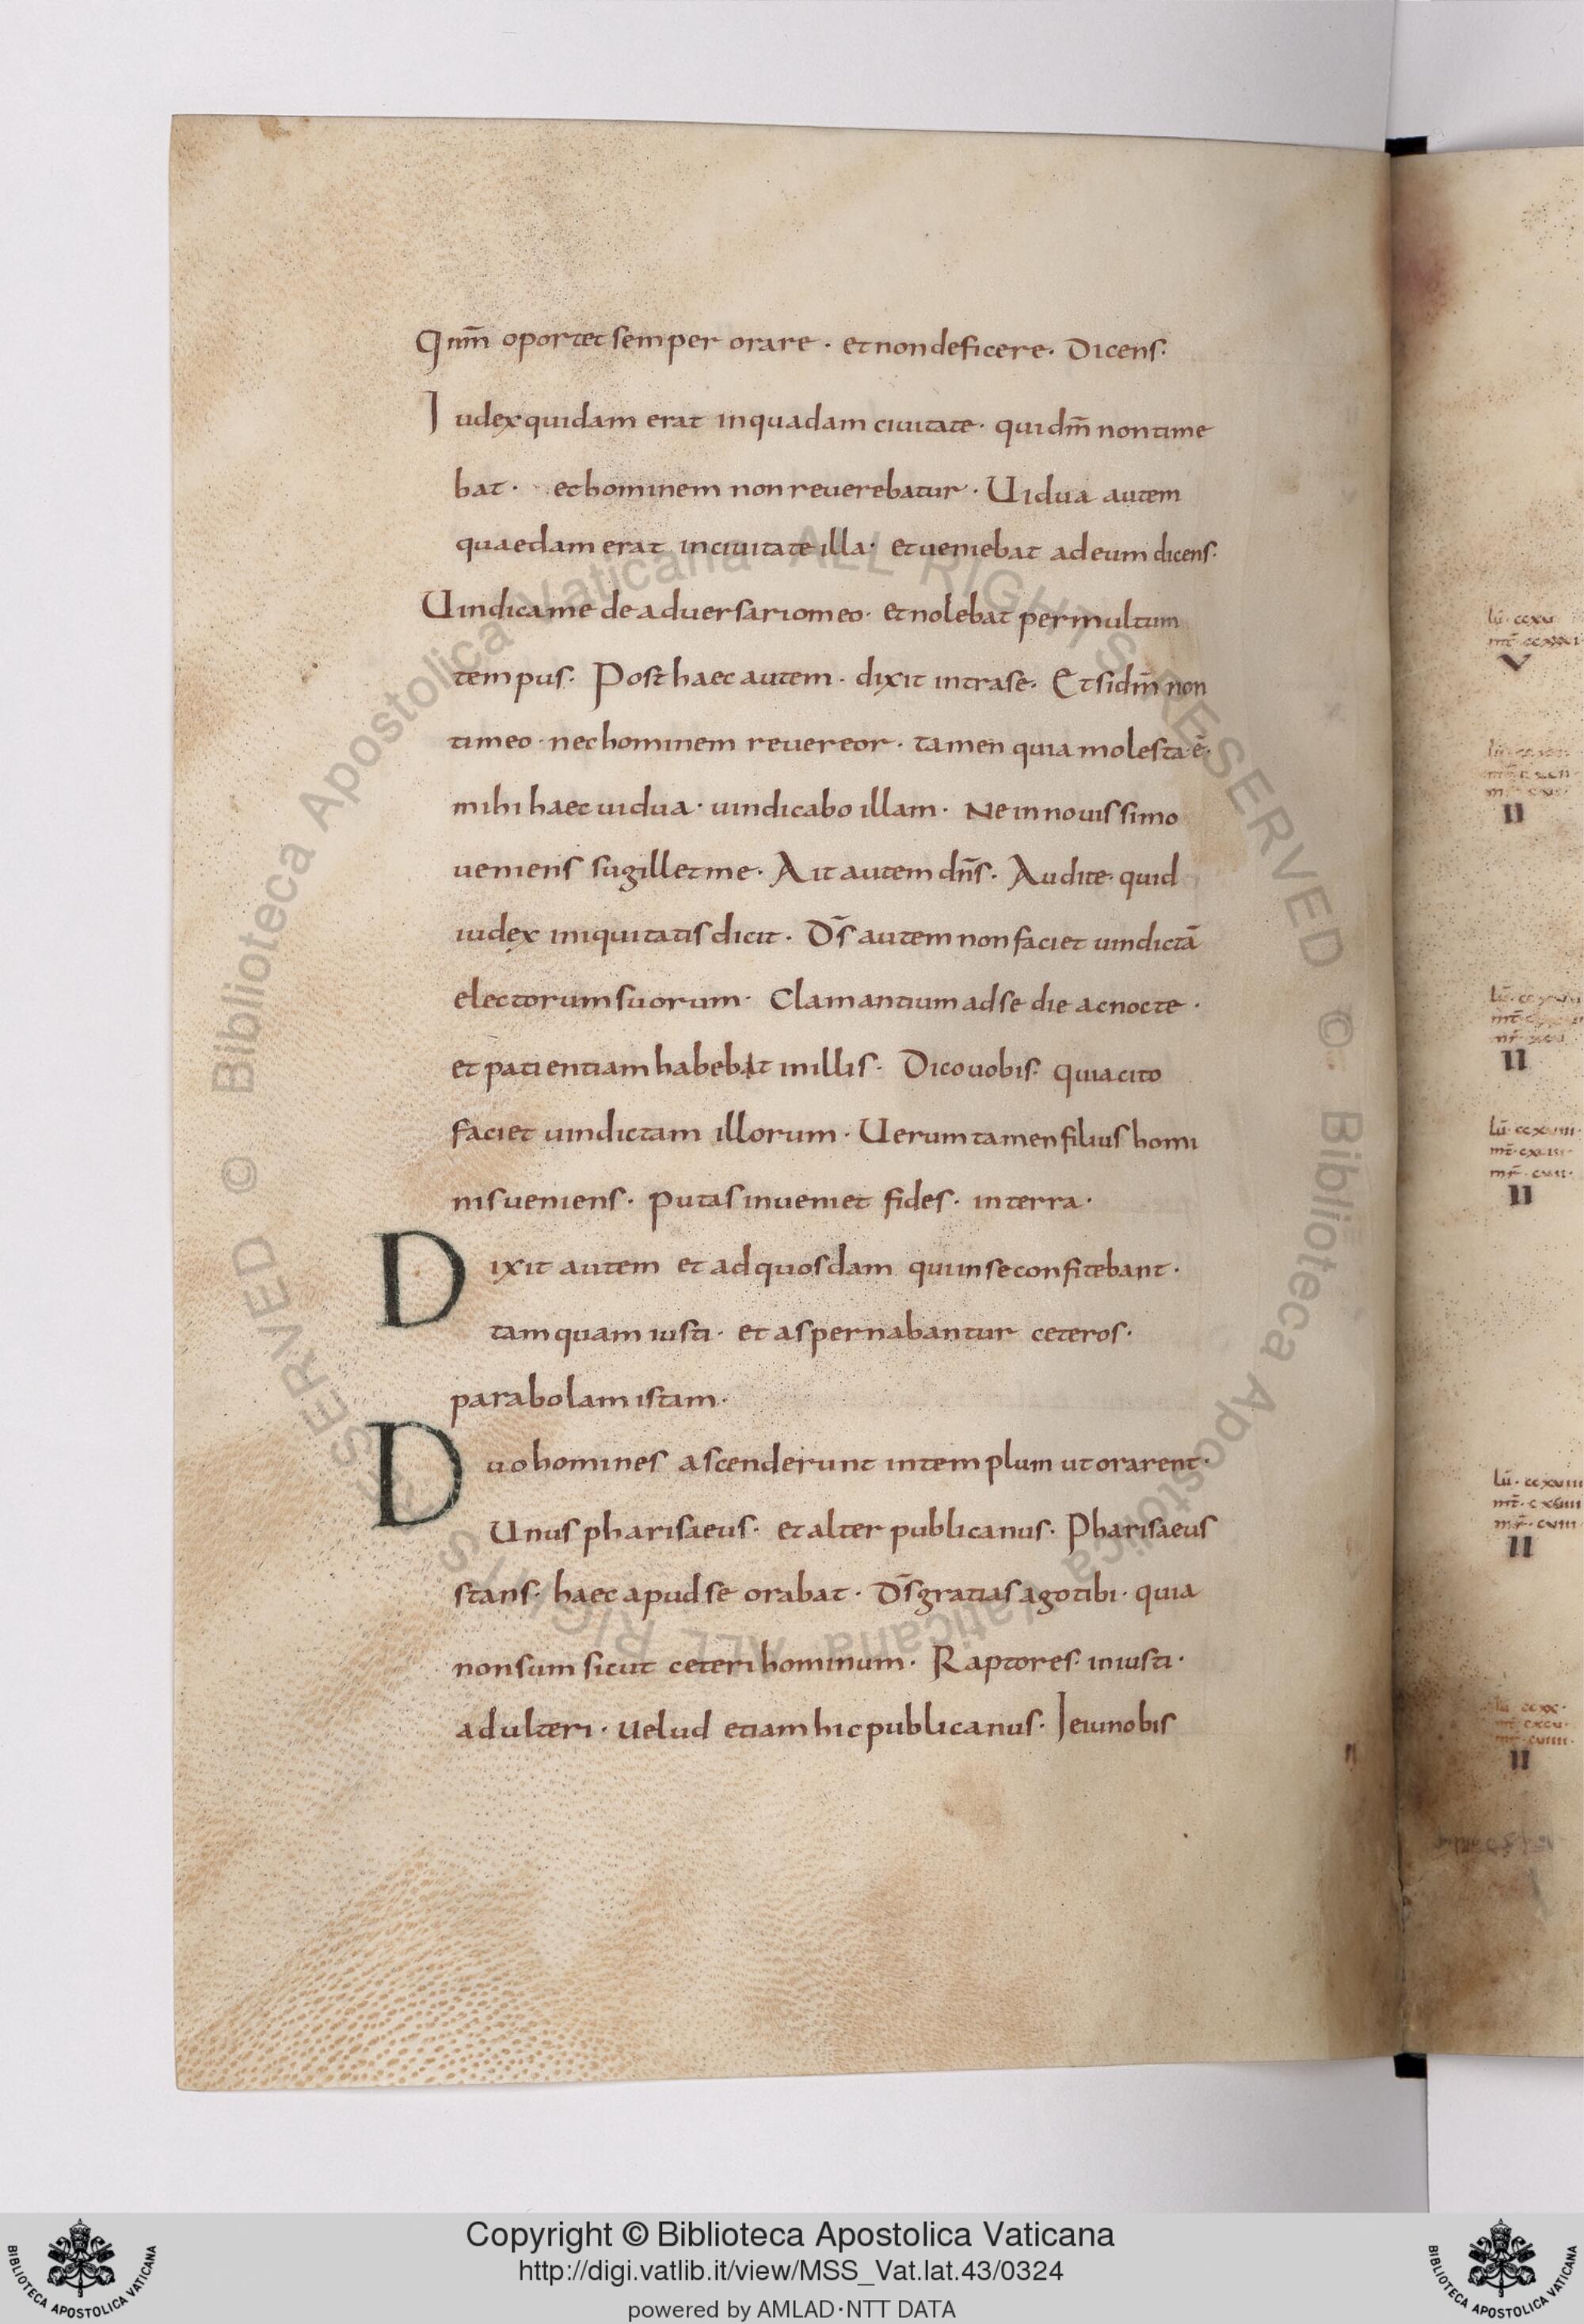 Qnm̄ oportet semper orare · et non deficere · Dicens ·
Iudex quidam erat in quadam ciuitate · qui dm̄ non time
bat · et hominem non reuerebatur · Uidua autem
quaedam erat in ciuitate illa · et ueniebat ad eum dicens ·
Uindica me de aduersario meo · et nolebat per multum
tempus · Post haec autem · dixit intra se · Et si dm̄ non
timeo · nec hominem reuereor · tamen quia molesta ē ·
mihi haec uidua · uindicabo illam · Ne in nouissimo
ueniens sugillet me · Ait autem dn̄s · Audite · quid
iudex iniquitatis dicit · Ds̄ autem non faciet uindictā
electorum suorum · Clamantium ad se die ac nocte ·
et patientiam habebat in illis · Dico uobis · quia cito
faciet uindictam illorum · Uerum tamen filius homi
nis ueniens · putas inueniet fides · in terra ·
Dixit autem et ad quosdam qui in se confitebant ·
tamquam iusti · et aspernabantur ceteros ·
parabolam istam ·
Duo homines ascenderunt in templum ut orarent ·
Unus pharisaeus · et alter publicanus · Pharisaeus
stans · haec apud se orabat · Ds̄ gratias ago tibi · quia
non sum sicut ceteri hominum · Raptores · iniusti ·
adulteri · uelud etiam hic publicanus · Ieiuno bis
Copyright © Biblioteca Apostolica Vaticana
http://digi.vatlib.it/view/MSS_Vat.lat.43/0324
powered by AMLAD·NTT DATA